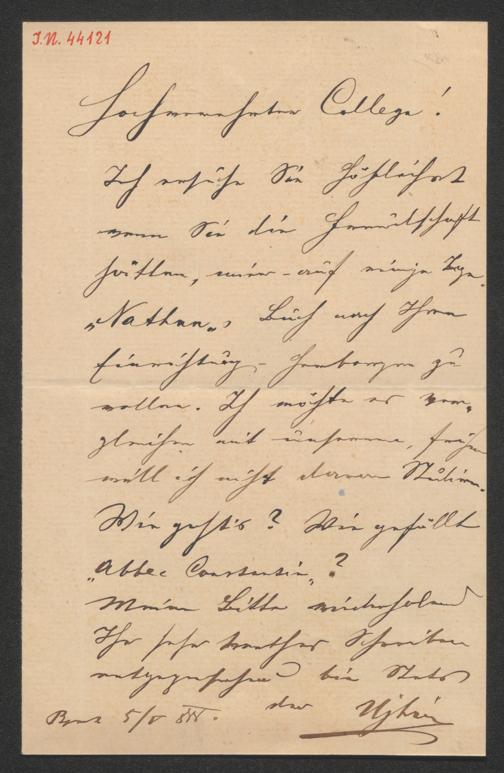 I.N. 44121
Hochverehrter College!
Ich ersuche Sie höflichst
wenn Sie die Freundschaft
hätten, mir - auf einige Tage
„Nathan„ Buch nach Ihrer
Einrichtung - borgen zu
wollen. Ich möchte es ver-
gleichen mit unserem, früher
will ich nicht daran
Wie geht's? Wie gefällt
„Abbée Constantin„?
Meine Bitte wiederholend
Ihr sehr werthes Schreiben
entgegensehend bin Stets
der
5/V